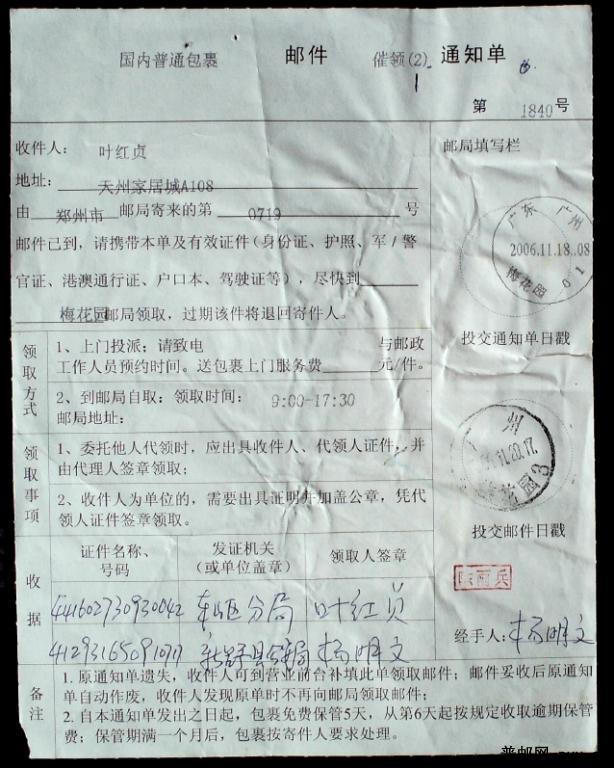 国内普通包裹 邮件 催领(2) 通知单
第 1840 号
收件人: 叶红贞
地址: 天州家居城A108
由 郑州市 邮局寄来的第 0719 号
邮件已到,请携带本单及有效证件(身份证、护照、军/警
官证、港澳通行证、户口本、驾驶证等),尽快到
梅花园邮局领取,过期该件将退回寄件人。
领取方式
1、上门投派;请致电 与邮政
工作人员预约时间。送包裹上门服务费 元/件。
2、到邮局自取:领取时间: 9:00-17:30
邮局地址:
领取事项
1、委托他人代领时,应出具收件人、代领人证件,并
由代理人签章领取;
2、收件人为单位的,需要出具证明并加盖公章,凭代
领人证件签章领取。
收据
证件名称、号码
发证机关(或单位盖章)
领取人签章
441602730930042 分局 叶红贞
杨明文
备注
1.原通知单遗失,收件人可到营业前台补填此单领取邮件;邮件妥收后原通知
单自动作废,收件人发现原单时不再向邮局领取邮件;
2.自本通知单发出之日起,包裹免费保管5天,从第6天起按规定收取逾期保管
费;保管期满一个月后,包裹按寄件人要求处理。
邮局填写栏
广东 广州
2006.11.18..08
梅花园 01
投交通知单日戳
州
11.20.17.
花园3
投交邮件日戳
经手人: 杨明文
普邮网